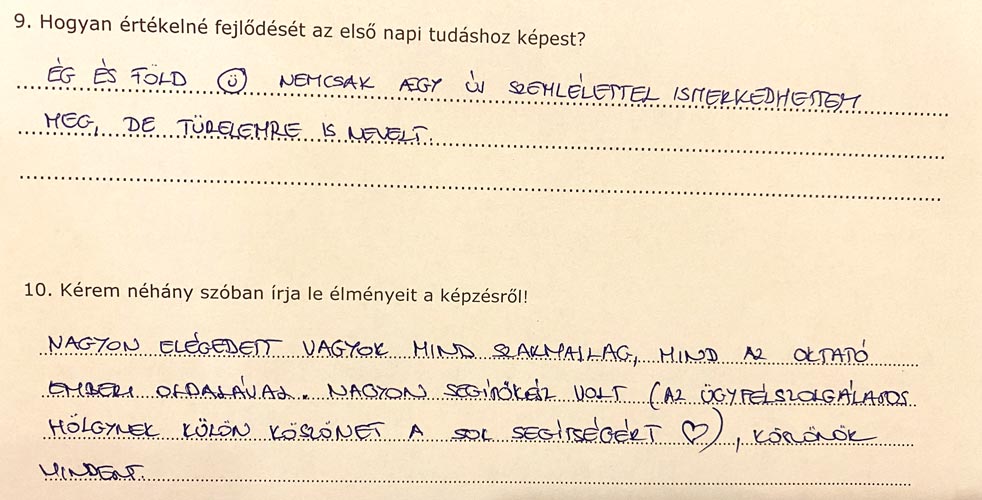 9. Hogyan értékelné fejlődését az első napi tudáshoz képest?
ÉG ÉS FÖLD ☺ NEMCSAK EGY ÚJ SZEMLÉLETTEL ISMERKEDHETTEM
MEG, DE TÜRELEMRE IS NEVELT.
10. Kérem néhány szóban írja le élményeit a képzésről!
NAGYON ELÉGEDETT VAGYOK MIND SZAKMAILAG, MIND AZ OKTATÓ
EMBERI OLDALÁVAL. NAGYON SEGÍTŐKÉSZ VOLT (AZ ÜGYFÉLSZOLGÁLATOS
HÖLGYNEK KÜLÖN KÖSZÖNET A SOK SEGÍTSÉGÉRT ♡), KÖSZÖNÖK
MINDENT.